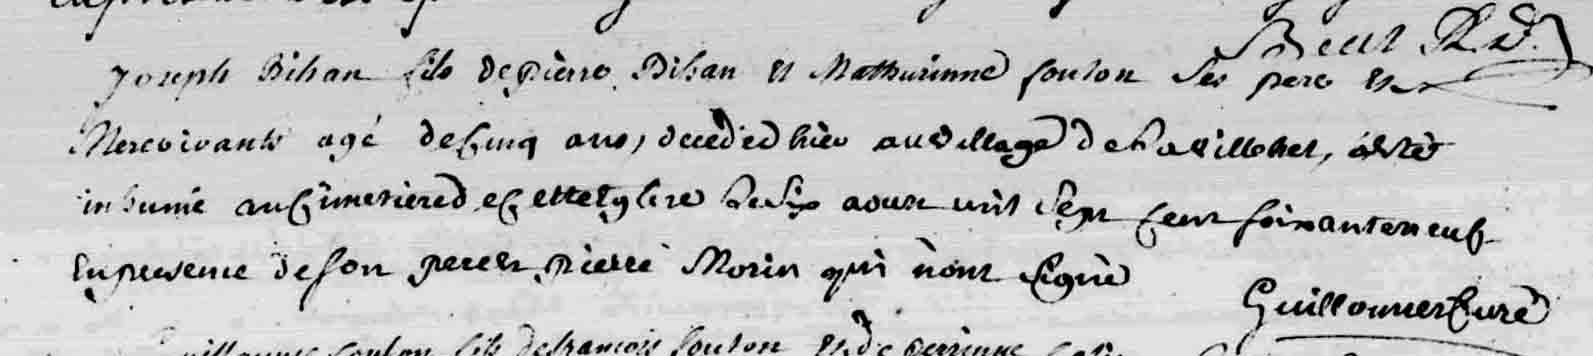 Joseph Bihan fils de pierre Bihan et Mathurinne soulon ses pere et
Mere vivants agé de Cinq ans, decedé d hier au village de la villohet, a eté
inhumé au Cimetiere de Cette Eglise le Six aout mil Sept Cent soixante neuf
En presence de son pere et pierre Morin qui n'ont Signé
Guillonnet Curé
guillaume soulon fils de françois soulon et de perrinne